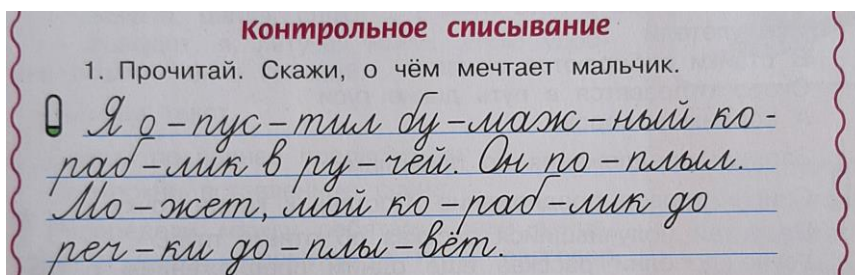 Контрольное списывание
1. Прочитай. Скажи, о чём мечтает мальчик.
Я о – пус – тил бу – маж – ный ко -
раб – лик в ру – чей. Он по – плыл.
Мо – жет, мой ко – раб – лик до
реч – ки до – плы – вёт.